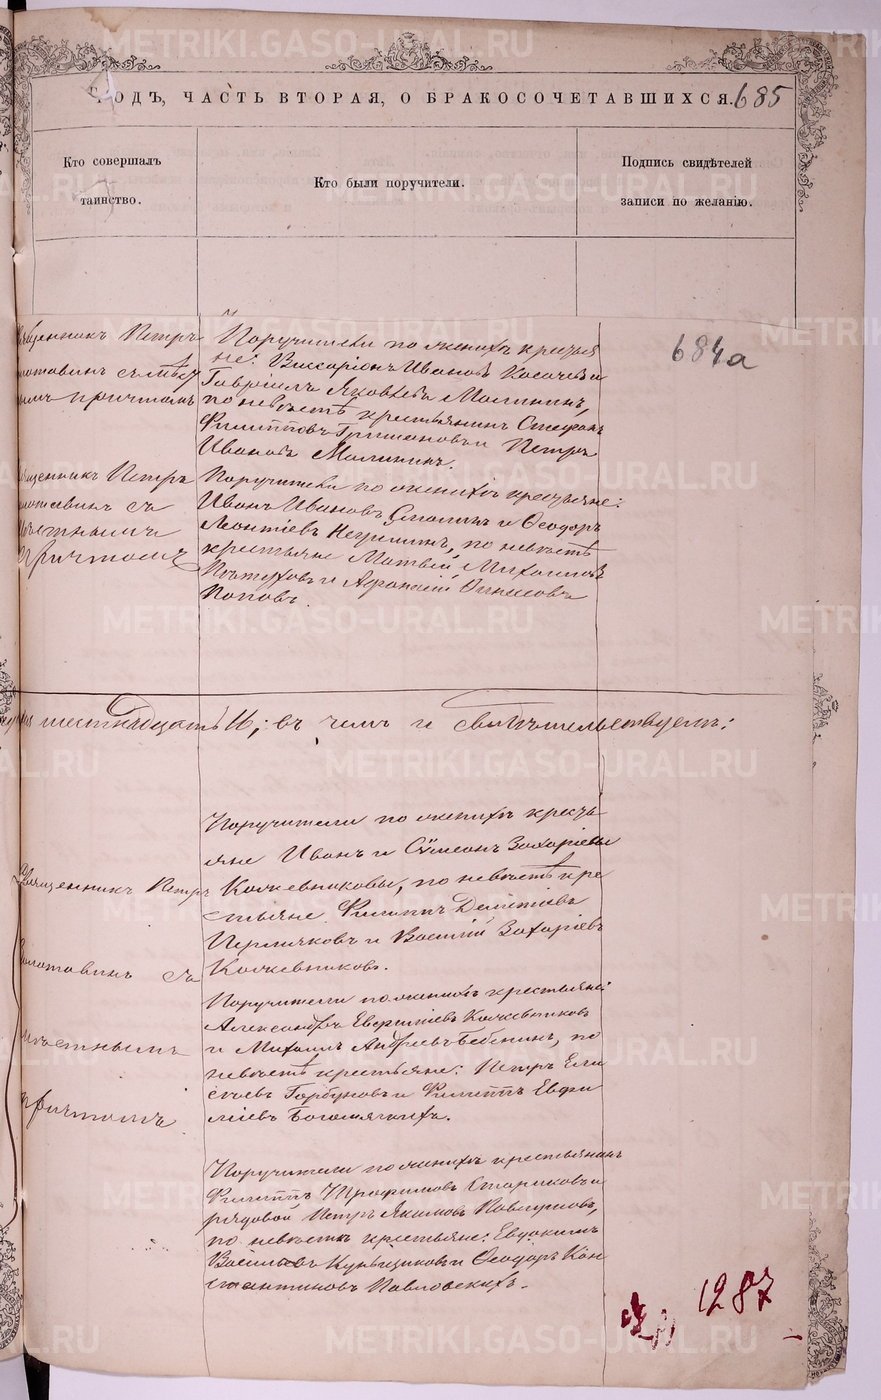 ГОДЪ, ЧАСТЬ ВТОРАЯ, О БРАКОСОЧЕТАВШИХСЯ. 685
Кто совершалъ
таинство.
Кто были поручители.
Подпись свидѣтелей
записи по желанію.
684а
Священникъ Петръ
Золотавинъ съ
мѣстнымъ причтомъ
Поручители по женихѣ крестья
не: Виссаріонъ Ивановъ Косачевъ и
Гавріилъ Яковлевъ Малининъ,
по невѣстѣ крестьянинъ Стефанъ
Филипповъ и Петръ
Ивановъ Малининъ.
Священникъ Петръ
Золотавинъ съ
мѣстнымъ
причтомъ
Поручители по женихѣ крестьяне:
Иванъ Ивановъ Смолинъ и Ѳеодоръ
Леонтіевъ по невѣстѣ
крестьяне Матвѣй Михаиловъ
Пѣтуховъ и Афанасій
Поповъ.
шестнадцать 16; въ чемъ и свидѣтельствуемъ:
Священникъ Петръ
Золотавинъ съ
мѣстнымъ
причтомъ
Поручители по женихѣ кресть
яне Иванъ и Сѵмеонъ Захаріевы
Кожевниковы, по невѣстѣ кре
стьяне Филиппъ Дементіевъ
Пермяковъ и Василій Захаріевъ
Кожевниковъ.
Поручители по женихѣ крестьяне
Александръ Кожевниковъ
и Михаилъ Андреевъ Бабенинъ, по
невѣстѣ крестьяне: Петръ Ели
сѣевъ Горбуновъ и Филиппъ Евфи
міевъ Богомягковъ.
Поручители по женихѣ крестьянинъ
Филиппъ Трофимовъ Стариковъ и
рядовой Петръ Якимовъ
по невѣстѣ крестьяне: Евдокимъ
Васильевъ и Ѳеодоръ Кон
стантиновъ Павловскихъ.
1287
METRIKI.GASO-URAL.RU